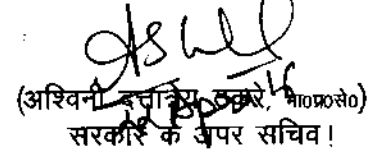 (अश्विनी दत्तात्रेय ठकरे, भा0प्र0से0)
सरकार के अपर सचिव!